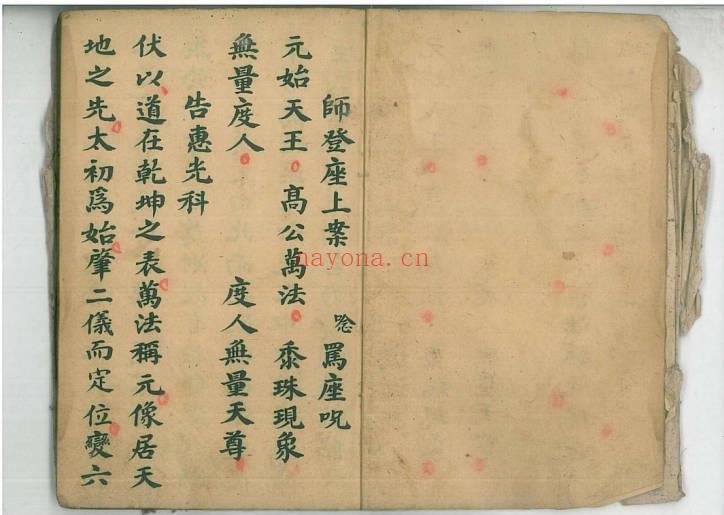 師登座上案 唸 罵座呪
元始天王 高公萬法 黍珠現象
無量度人 度人無量天尊
告惠光科
伏以道在乾坤之表萬法稱元像居天
地之先太初爲始肇二儀而定位變六
nayona.cn